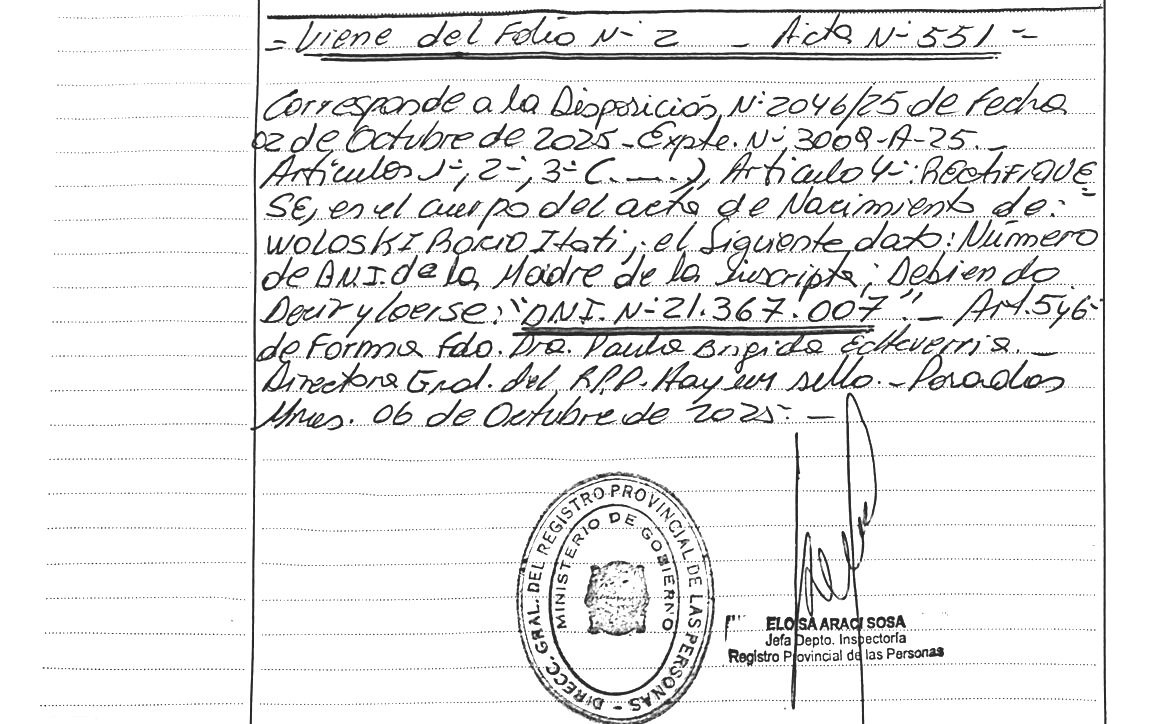 = Viene del Folio Nº 2 _ Acta Nº 551 =
Corresponde a la Disposición Nº 2046/25 de Fecha
02 de Octubre de 2025 - Expte. Nº 3009-A-25. _
Artículos 1º, 2º, 3º (. _ _ .), Artículo 4º: RECTIFIQUE
SE, en el cuerpo del acta de Nacimiento de:
WOLOSKI ROCIO Itati, el Siguiente dato: Número
de D.N.I. de la Madre de la Suscripta; Debiendo
Decir y leerse: "DNI. Nº 21.367.007". _ Art. 5, 6º
de Forma Fdo. Dra. Paula Brigida Echeverria. _
Directora Gral. del R.P.P. Hay un sello. - Posadas
Mnes. 06 de Octubre de 2025. _
DIRECC. GRAL. DEL REGISTRO PROVINCIAL DE LAS PERSONAS -
MINISTERIO DE GOBIERNO
ELOISA ARACI SOSA
Jefa Depto. Inspectoría
Registro Provincial de las Personas